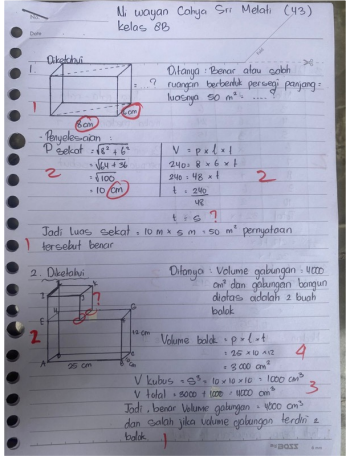 Ni wayan Cahya Sri Melati (43)
kelas 8B
No.
Date
1. Diketahui
= ...?
8 cm
6 cm
1
Ditanya : Benar atau salah
ruangan berbentuk persegi panjang
luasnya 50 m² = ..... ?
- Penyelesaian :
P sekat = √8² + 6²
= √64 + 36
= √100
= 10 cm
2
V = p x l x t
240 = 8 x 6 x t
240 = 48 x t
t = 240
48
t = 5 ?
2
Jadi luas sekat = 10 m x 5 m = 50 m² pernyataan
tersebut benar
1
2. Diketahui
2
E
G
A
25 cm
12 cm
Ditanya : Volume gabungan = 4000
cm³ dan gabungan bangun
diatas adalah 2 buah
balok
Volume balok = p x l x t
= 25 x 10 x 12
= 3000 cm³
4
V kubus = S³ = 10 x 10 x 10 = 1000 cm³
3
V total = 3000 + 1000 = 4000 cm³
Jadi, benar Volume gabungan = 4000 cm³
dan salah jika volume gabungan terdiri 2
balok
1
BOSS